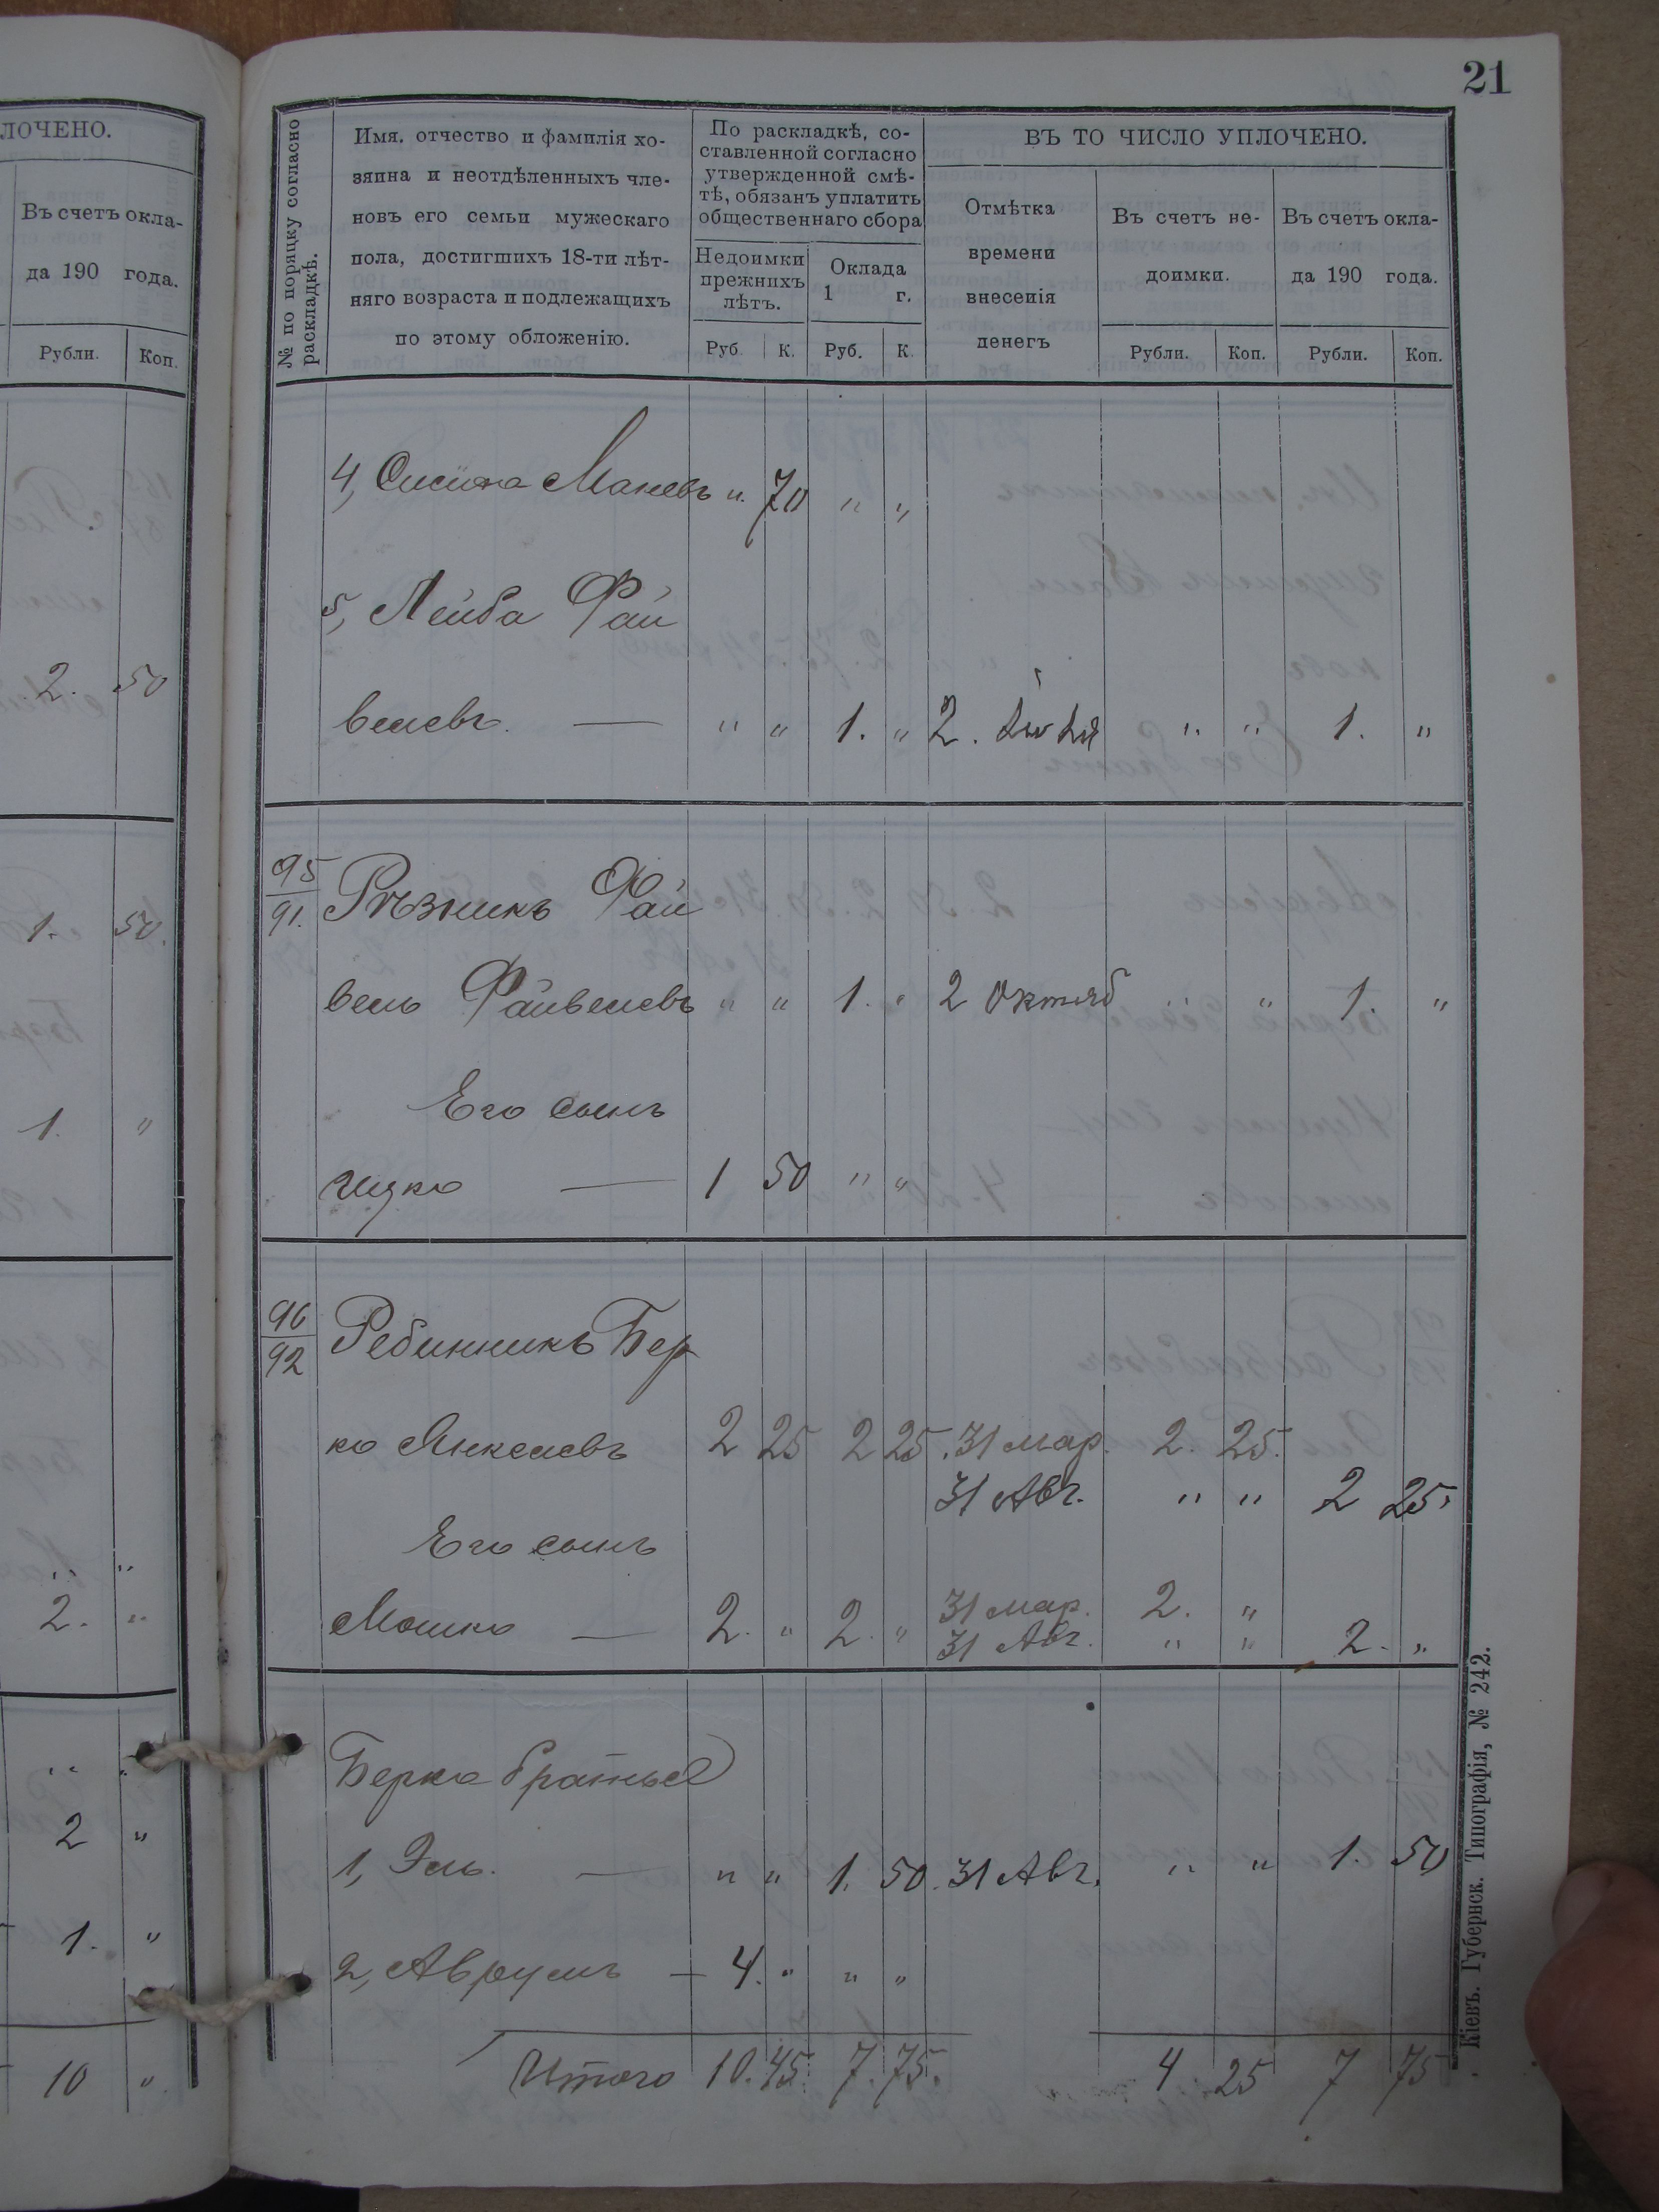 ЛОЧЕНО.
Въ счетъ окла-
да 190 года.
Рубли. Коп.
2. 50
1. 50.
1. "
" "
2. "
" "
2 "
1. "
10 "
21
№ по порядку согласно
раскладкѣ.
Имя, отчество и фамилія хо-
зяина и неотдѣленныхъ чле-
новъ его семьи мужескаго
пола, достигшихъ 18-ти лѣт-
няго возраста и подлежащихъ
по этому обложенію.
По раскладкѣ, со-
ставленной согласно
утвержденной смѣ-
тѣ, обязанъ уплатить
общественнаго сбора
Недоимки
прежнихъ
лѣтъ.
Оклада
1 г.
Руб. К. Руб. К.
ВЪ ТО ЧИСЛО УПЛОЧЕНО.
Отмѣтка
времени
внесенія
денегъ
Въ счетъ не-
доимки.
Рубли. Коп.
Въ счетъ окла-
да 190 года.
Рубли. Коп.
4, Маневъ ". 70 " "
5, Лейба Фай
велевъ. — " " 1. " 2. Іюля " " 1. "
95/91. Рѣзникъ Фай
вель Файвелевъ " " 1. " 2 Октяб " " 1. "
Его сынъ
Ицко — 1 50 " "
96/92 Ребинникъ Бер
ко Янкелевъ 2 25 2 25. 31 мар. 2. 25.
31 Авг. " " 2 25.
Его сынъ
Мошко — 2. " 2. " 31 мар. 2. "
31 Авг. " " 2. "
Берка братья
1, Эль. — " " 1. 50. 31 Авг. " " 1. 50
2, Аврумъ — 4. " " "
Итого 10. 45. 7. 75. 4 25 7 75
Кіевъ. Губернск. Типографія, № 242.